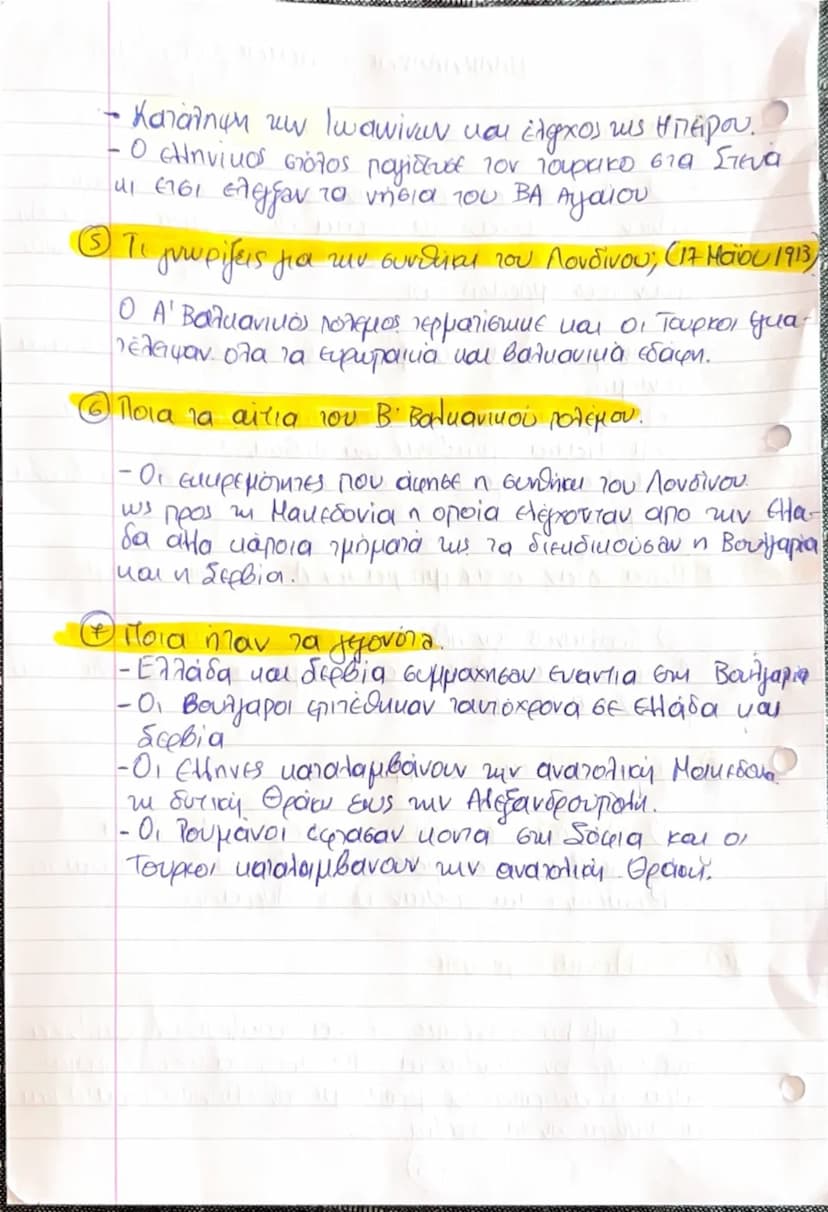 - Κατάληψη των Ιωαννίνων και έλεγχος της Ηπείρου.
- Ο ελληνικος στόλος παγίδευσε τον τουρκικο στα Στενά
κι ετσι ελεγξαν τα νησια του ΒΑ Αιγαίου
⑤ Τι γνωρίζεις για την συνθήκη του Λονδίνου; (17 Μαϊου 1913)
Ο Α' Βαλκανικός πόλεμος τερματίστηκε και οι Τουρκοι εγκα-
τέλειψαν ολα τα ευρωπαικά και βαλκανικά εδάφη.
⑥ Ποια τα αίτια του Β' Βαλκανικού πολέμου.
- Οι εκκρεμότητες που άφησε η συνθήκη του Λονδίνου
ως προς τη Μακεδονία η οποία ελέγχονταν απο την Ελλα-
δα αλλα κάποια τμήματά της τα διεκδικούσαν η Βουλγαρία
και η Σερβία.
⑦ Ποια ήταν τα γεγονότα.
- Ελλάδα και Σερβία συμμαχησαν εναντια στη Βουλγαρία
- Οι Βουλγαροι επιτέθηκαν ταυτόχρονα σε Ελλάδα και
Σερβία
- Οι Ελληνες καταλαμβάνουν την ανατολική Μακεδονια
τη δυτική Θράκη εως την Αλεξανδρουπολη.
- Οι Ρουμάνοι έφτασαν κοντα στη Σόφια και οι
Τουρκοι καταλαμβανουν την ανατολική Θρακη.